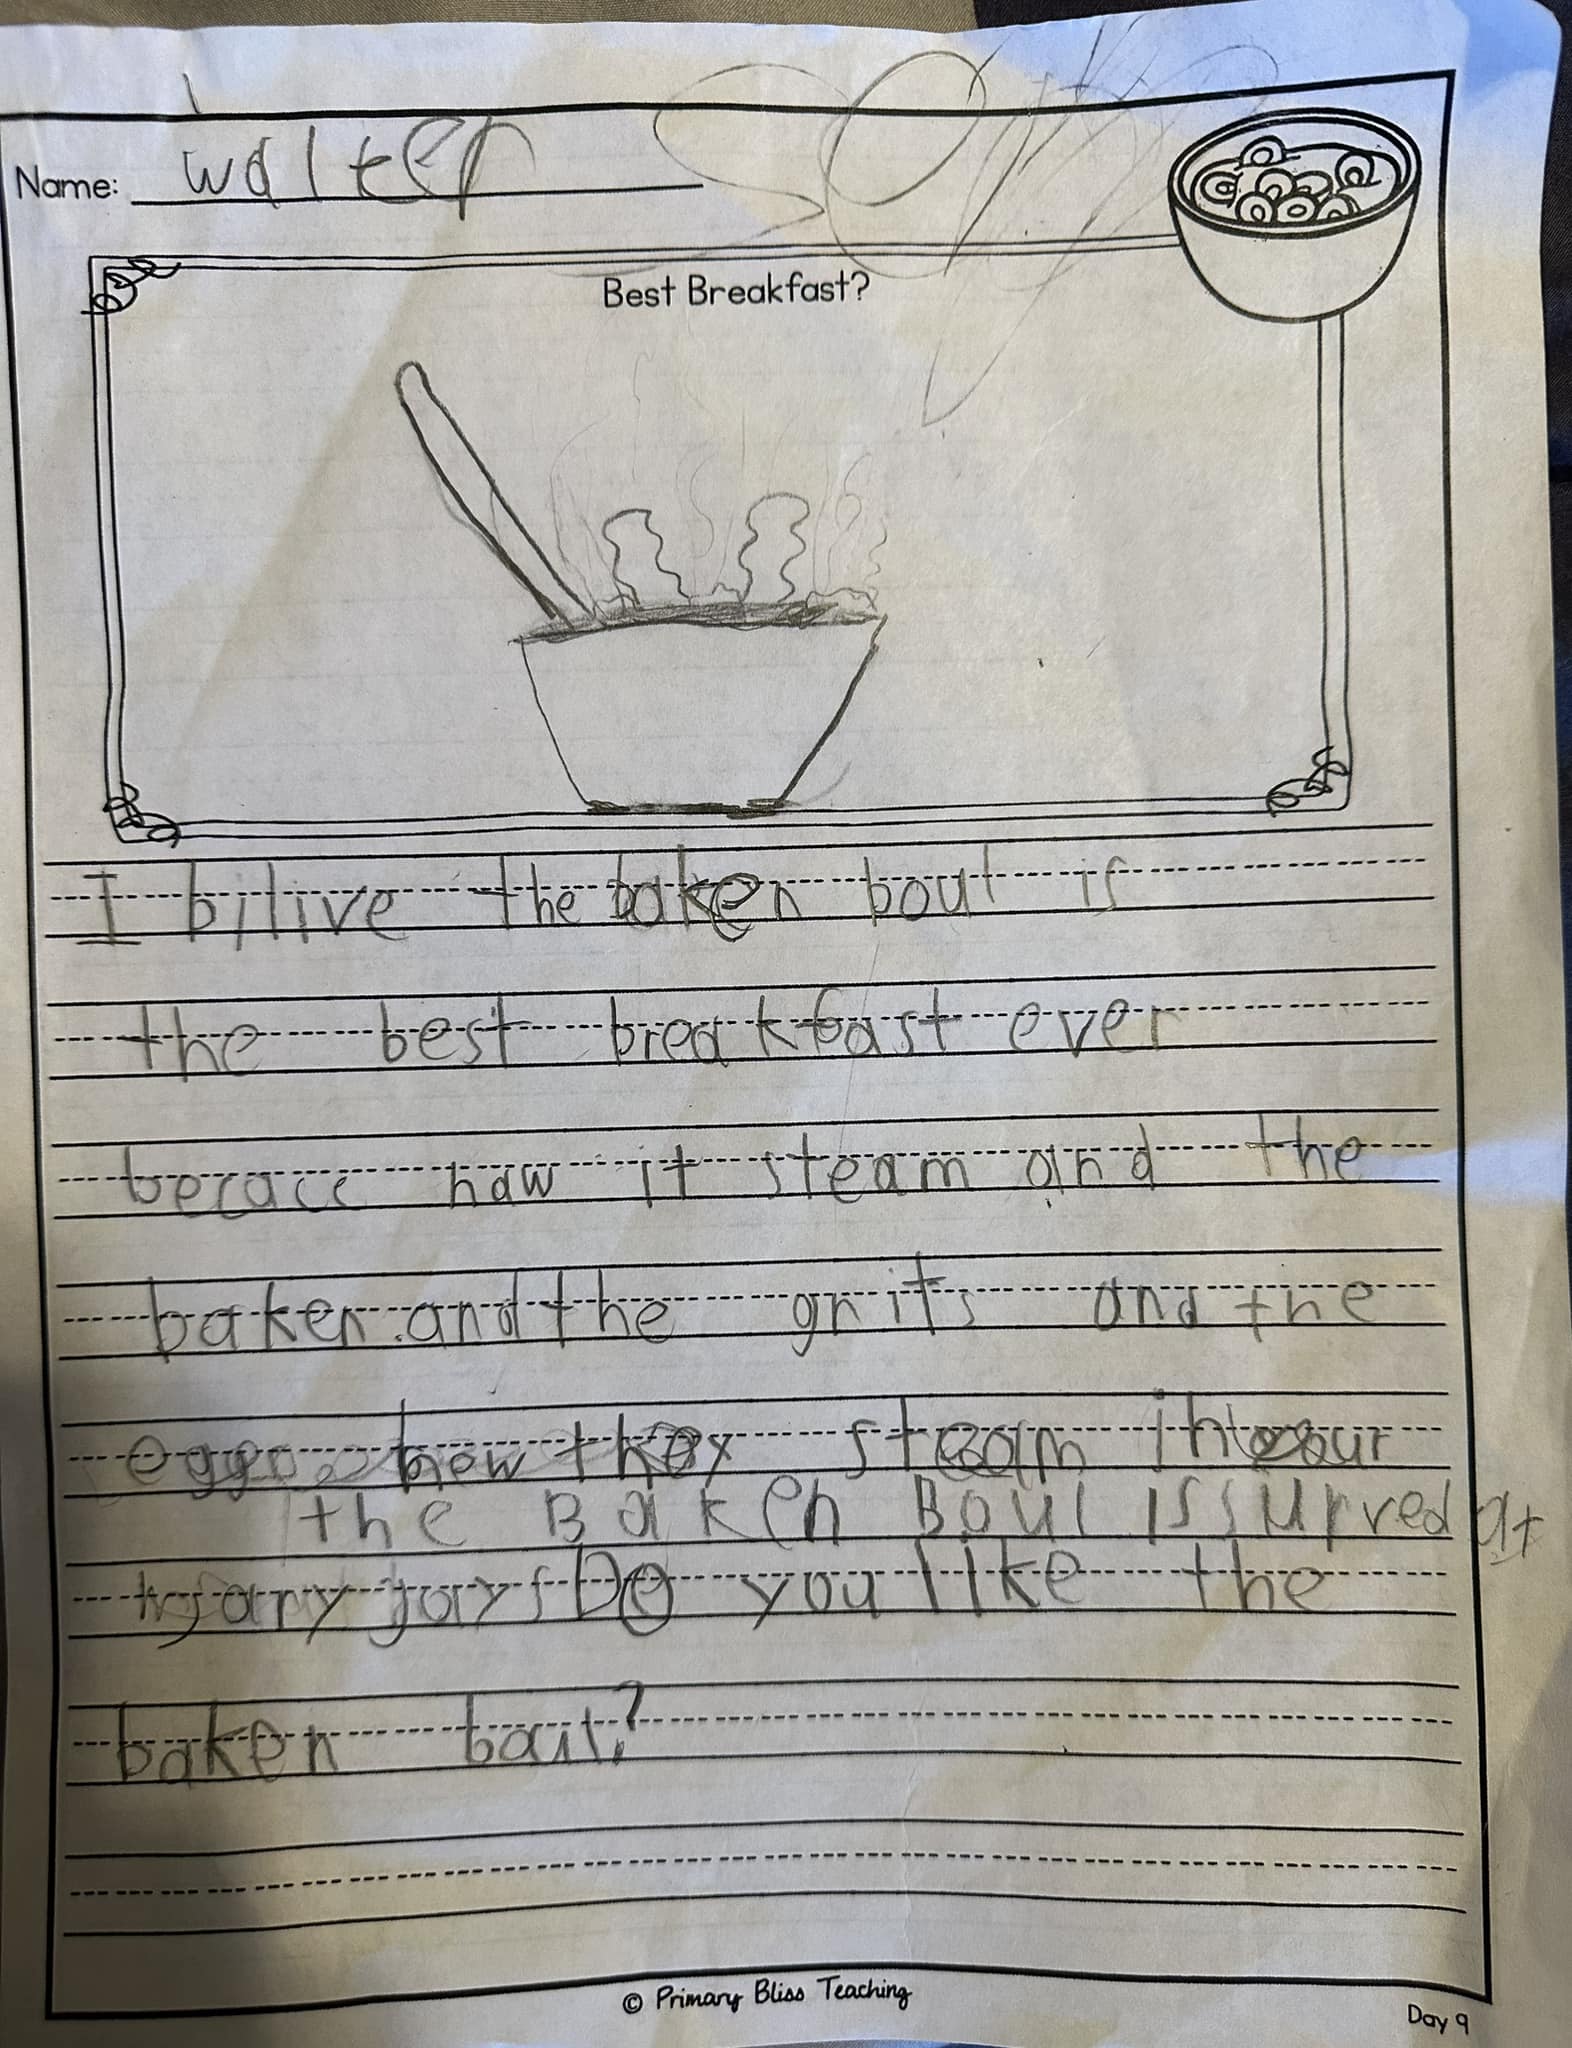 Name: walter
Best Breakfast?
I bilive the baken boul is
the best breakfast ever
becacc haw it steam and the
baken.and the grits and the
eggs how they steam in our
the Baken Boul is surved at
jary jays Do you like the
baken boul?
© Primary Bliss Teaching
Day 9